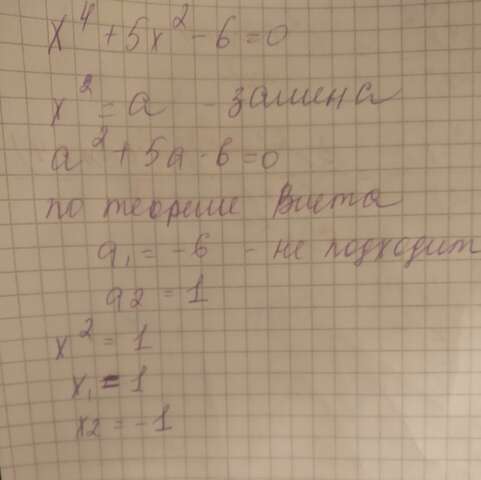 x⁴ + 5x² - 6 = 0
x² = a - замена
a² + 5a - 6 = 0
по теореме Виета
a₁ = -6 - не подходит
a2 = 1
x² = 1
x₁ = 1
x2 = -1